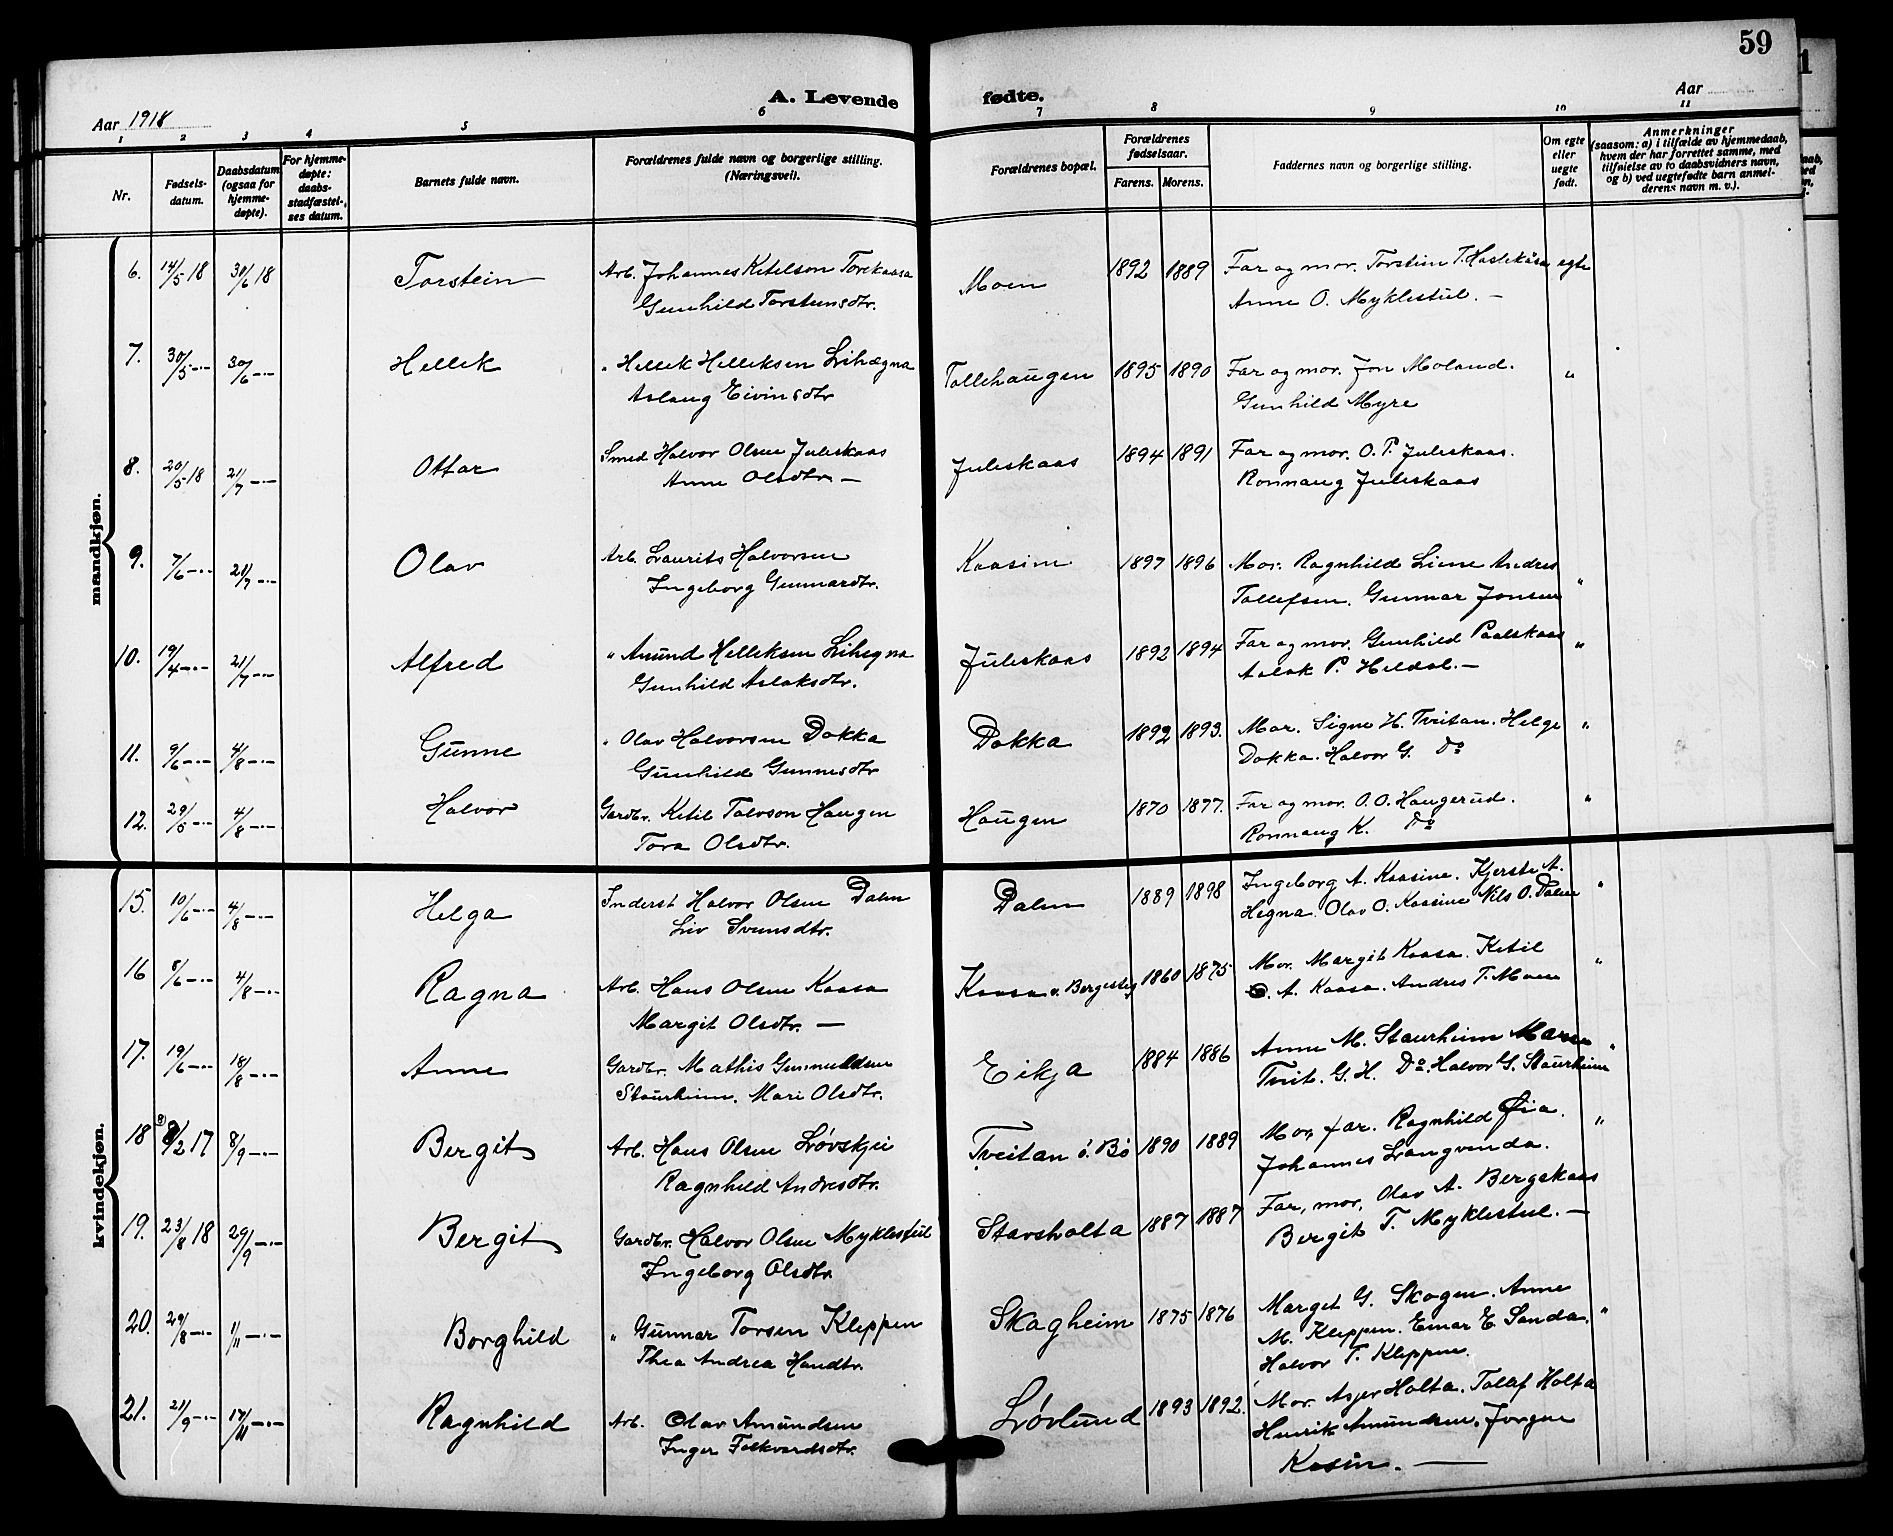 59
Aar 1918
A. Levende fødte.
Aar
1 2 3 4 5 6 7 8 9 10 11
Nr.
Fødsels-
datum.
Daabsdatum
(ogsaa for
hjemme-
døpte).
For hjemme-
døpte:
daabs-
stadfæstel-
ses datum.
Barnets fulde navn.
Forældrenes fulde navn og borgerlige stilling.
(Næringsvei).
Forældrenes bopæl.
Forældrenes
fødselsaar.
Farens. Morens.
Faddernes navn og borgerlige stilling.
Om egte
eller
uegte
født.
Anmerkninger
(saasom: a) i tilfælde av hjemmedaab,
hvem der har forrettet samme, med
tilføielse av to daabsvidners navn,
og b) ved uegtefødte barn anmel-
derens navn m. v.).
mandkjøn.
6. 14/5 18 30/6 18 Torstein Arb. Johannes Ketelson Torekaasa Moen 1892 1889 Far og mor. Torstein T. Haslekåsa egte
Gunhild Torsteinsdtr. Anne O. Myklestul. —
7. 30/5 -"- 30/6 -"- Hellek " Hellek Helleksen Lihægna Tollehaugen 1895 1890 Far og mor. Jon Moland. "
Aslaug Eivinsdtr Gunhild Myre
8. 20/5 18 21/7 -"- Ottar Smed Halvor Olsen Juleskaas Juleskaas 1894 1891 Far og mor. O. P. Juleskaas.
Anne Olsdtr. — Ronnaug Juleskaas
9. 7/6 -"- 21/7 -"- Olav Arb. Laurits Halvorsen Kaasine 1897 1896 Mor. Ragnhild Liene Andres
Ingeborg Gunnarsdtr. Tollefsen. Gunnar Jonsen "
10. 19/4 -"- 21/7 -"- Alfred " Amund Helleksen Lihegna Juleskaas 1892 1894 Far og mor. Gunhild Paalskaas "
Gunhild Aslaksdtr. Aslak P. Heldal. —
11. 9/6 -"- 4/8 -"- Gunne " Olav Halvorsen Dokka Dokka 1892 1893. Mor. Signe H. Tveitan. Helge "
Gunhild Gunnesdtr Dokka. Halvor G. Do
12. 29/5 -"- 4/8 -"- Halvor Gardbr. Ketil Talvson Haugen Haugen 1870 1877. Far og mor. O. O. Haugerud. "
Tora Olsdtr. Ronnaug K. Do
kvindekjøn.
15. 10/6 -"- 4/8 -"- Helga Inderst Halvor Olsen Dalen Dalen 1889 1898 Ingeborg A. Kaasine. Kjersti A. "
Liv Svensdtr. Hegna. Olav O. Kaasine Nils O. Dalen
16 8/6 -"- 4/8 -"- Ragna Arb. Hans Olsen Kaasa Kaasa v. Bergesteg 1860 1875 Mor. Margit Kaasa. Ketil "
Margit Olsdtr. — A. Kaasa. Andres T. Moen
17. 19/6 -"- 18/8 -"- Anne Gardbr. Mathis Gunnuldsen Eikja 1884 1886 Anne M. Staurheim Maren "
Staurheim. Mari Olsdtr. Tveit. G. H. Do. Halvor G. Staurheim
18 8/2 17 8/9 -"- Bergit Arb. Hans Olsen Løvskjei Tveitan i Bø 1890 1889 Mor, far. Ragnhild Øia. "
Ragnhild Andresdtr. Johannes Langvenda.
19. 23/8 18 29/9 -"- Bergit Gardbr. Halvor Olsen Myklestul Stavsholta 1887 1887 Far, mor. Olav A. Bergskaas
Ingeborg Olsdtr. Bergit T. Myklestul. —
20. 29/8 -"- 1/11 -"- Borghild " Gunnar Torsen Kleppen Skagheim 1875 1876 Marget G. Skogen. Anne
Thea Andrea Hansdtr. M. Kleppen. Einar E. Sanda. "
Halvor T. Kleppen.
21. 21/9 -"- 17/11 -"- Ragnhild Arb. Olav Amundsen Løvlund 1893 1892. Mor. Asjer Holta. Tolef Holta
Inger Folkvardsdtr. Henrik Amundsen. Jorgen
Kasin. —